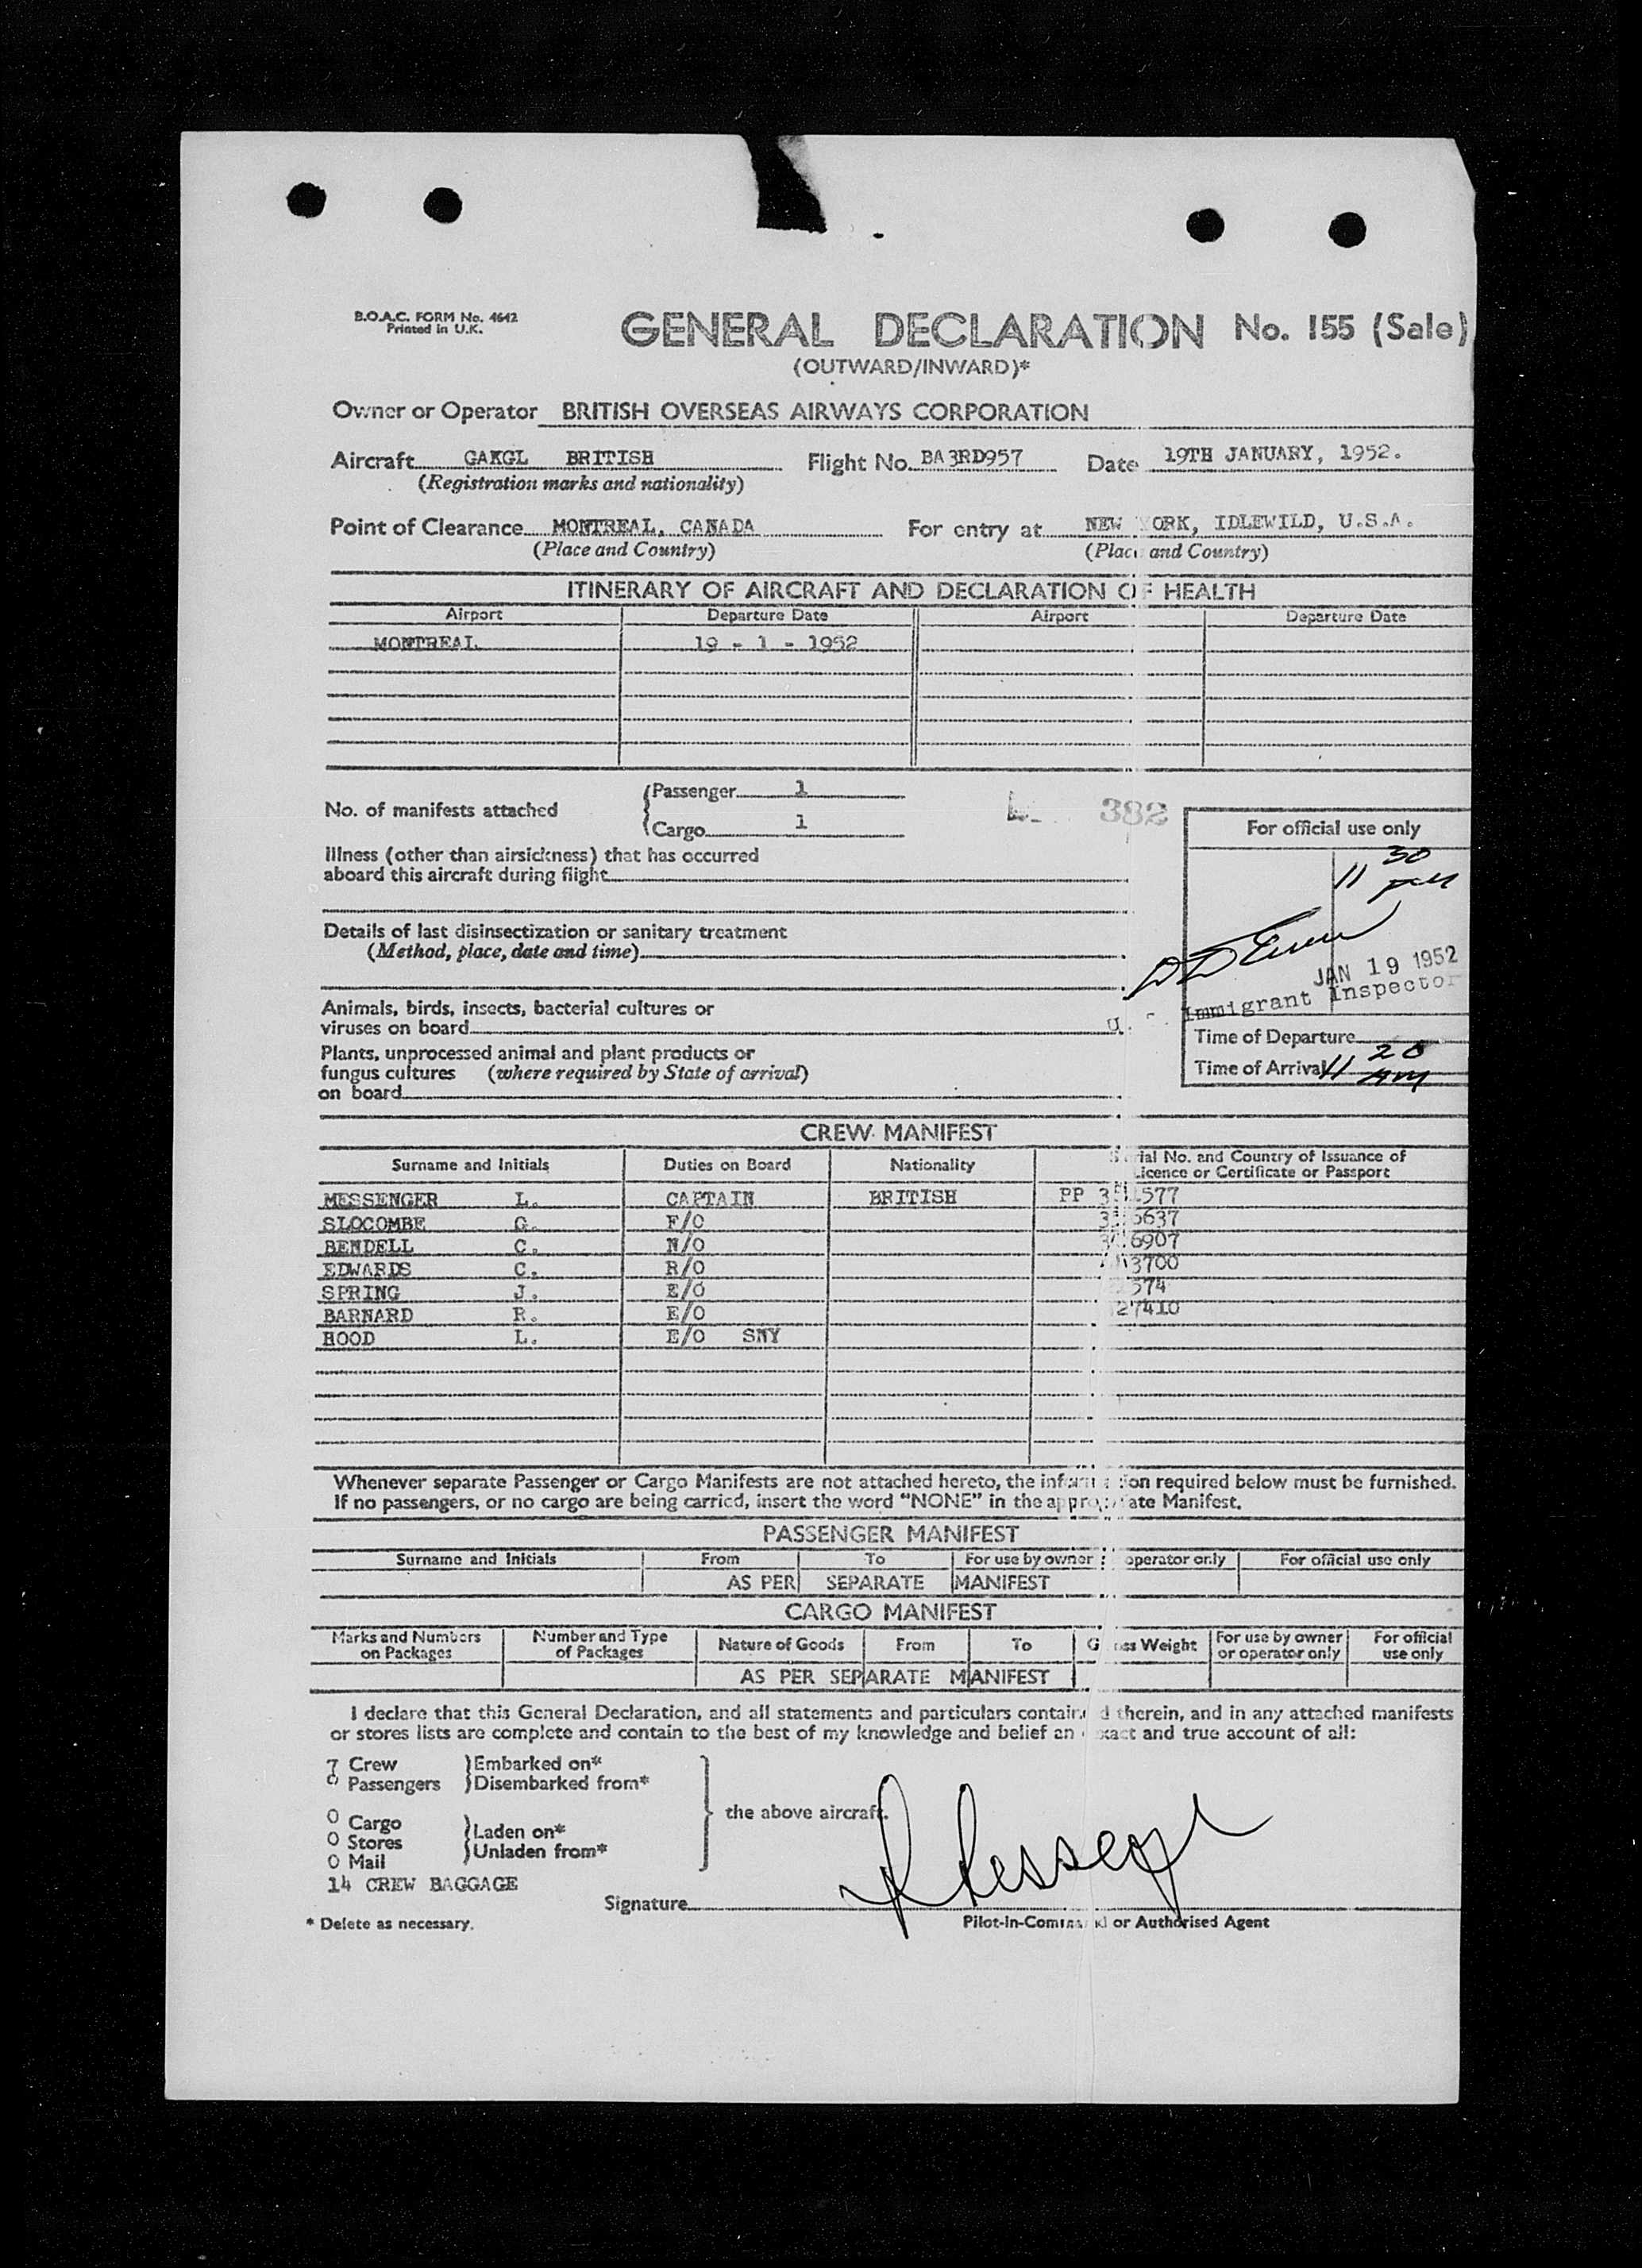 B.O.A.C. FORM No. 4642
Printed in U.K.
GENERAL DECLARATION No. 155 (Sale)
(OUTWARD/INWARD)*
Owner or Operator BRITISH OVERSEAS AIRWAYS CORPORATION
Aircraft GAKGL BRITISH Flight No. BA3RD957 Date 19TH JANUARY, 1952.
(Registration marks and nationality)
Point of Clearance MONTREAL, CANADA For entry at NEW ORK, IDLEWILD, U.S.A.
(Place and Country) (Place and Country)
ITINERARY OF AIRCRAFT AND DECLARATION OF HEALTH
Airport Departure Date Airport Departure Date
MONTREAL 19 - 1 - 1952
No. of manifests attached
Passenger 1
Cargo 1
382
For official use only
11 30
Illness (other than airsickness) that has occurred
aboard this aircraft during flight
Details of last disinsectization or sanitary treatment
(Method, place, date and time)
JAN 19 1952
Immigrant Inspector
Animals, birds, insects, bacterial cultures or
viruses on board
Plants, unprocessed animal and plant products or
fungus cultures (where required by State of arrival)
on board
Time of Departure
Time of Arrival 11 20 AM
CREW MANIFEST
Surname and Initials Duties on Board Nationality Serial No. and Country of Issuance of
Licence or Certificate or Passport
MESSENGER L. CAPTAIN BRITISH PP
SLOCOMBE G. F/O
BENDELL C. N/O
EDWARDS C. R/O
SPRING J. E/O
BARNARD R. E/O
HOOD L. E/O SNY
Whenever separate Passenger or Cargo Manifests are not attached hereto, the information required below must be furnished.
If no passengers, or no cargo are being carried, insert the word "NONE" in the appropriate Manifest.
PASSENGER MANIFEST
Surname and Initials From To For use by owner operator only For official use only
AS PER SEPARATE MANIFEST
CARGO MANIFEST
Marks and Numbers on Packages Number and Type of Packages Nature of Goods From To Gross Weight For use by owner or operator only For official use only
AS PER SEPARATE MANIFEST
I declare that this General Declaration, and all statements and particulars contained therein, and in any attached manifests
or stores lists are complete and contain to the best of my knowledge and belief an exact and true account of all:
7 Crew } Embarked on*
0 Passengers } Disembarked from*
the above aircraft.
0 Cargo
0 Stores } Laden on*
0 Mail } Unladen from*
14 CREW BAGGAGE
Signature
* Delete as necessary.
Pilot-in-Command or Authorised Agent